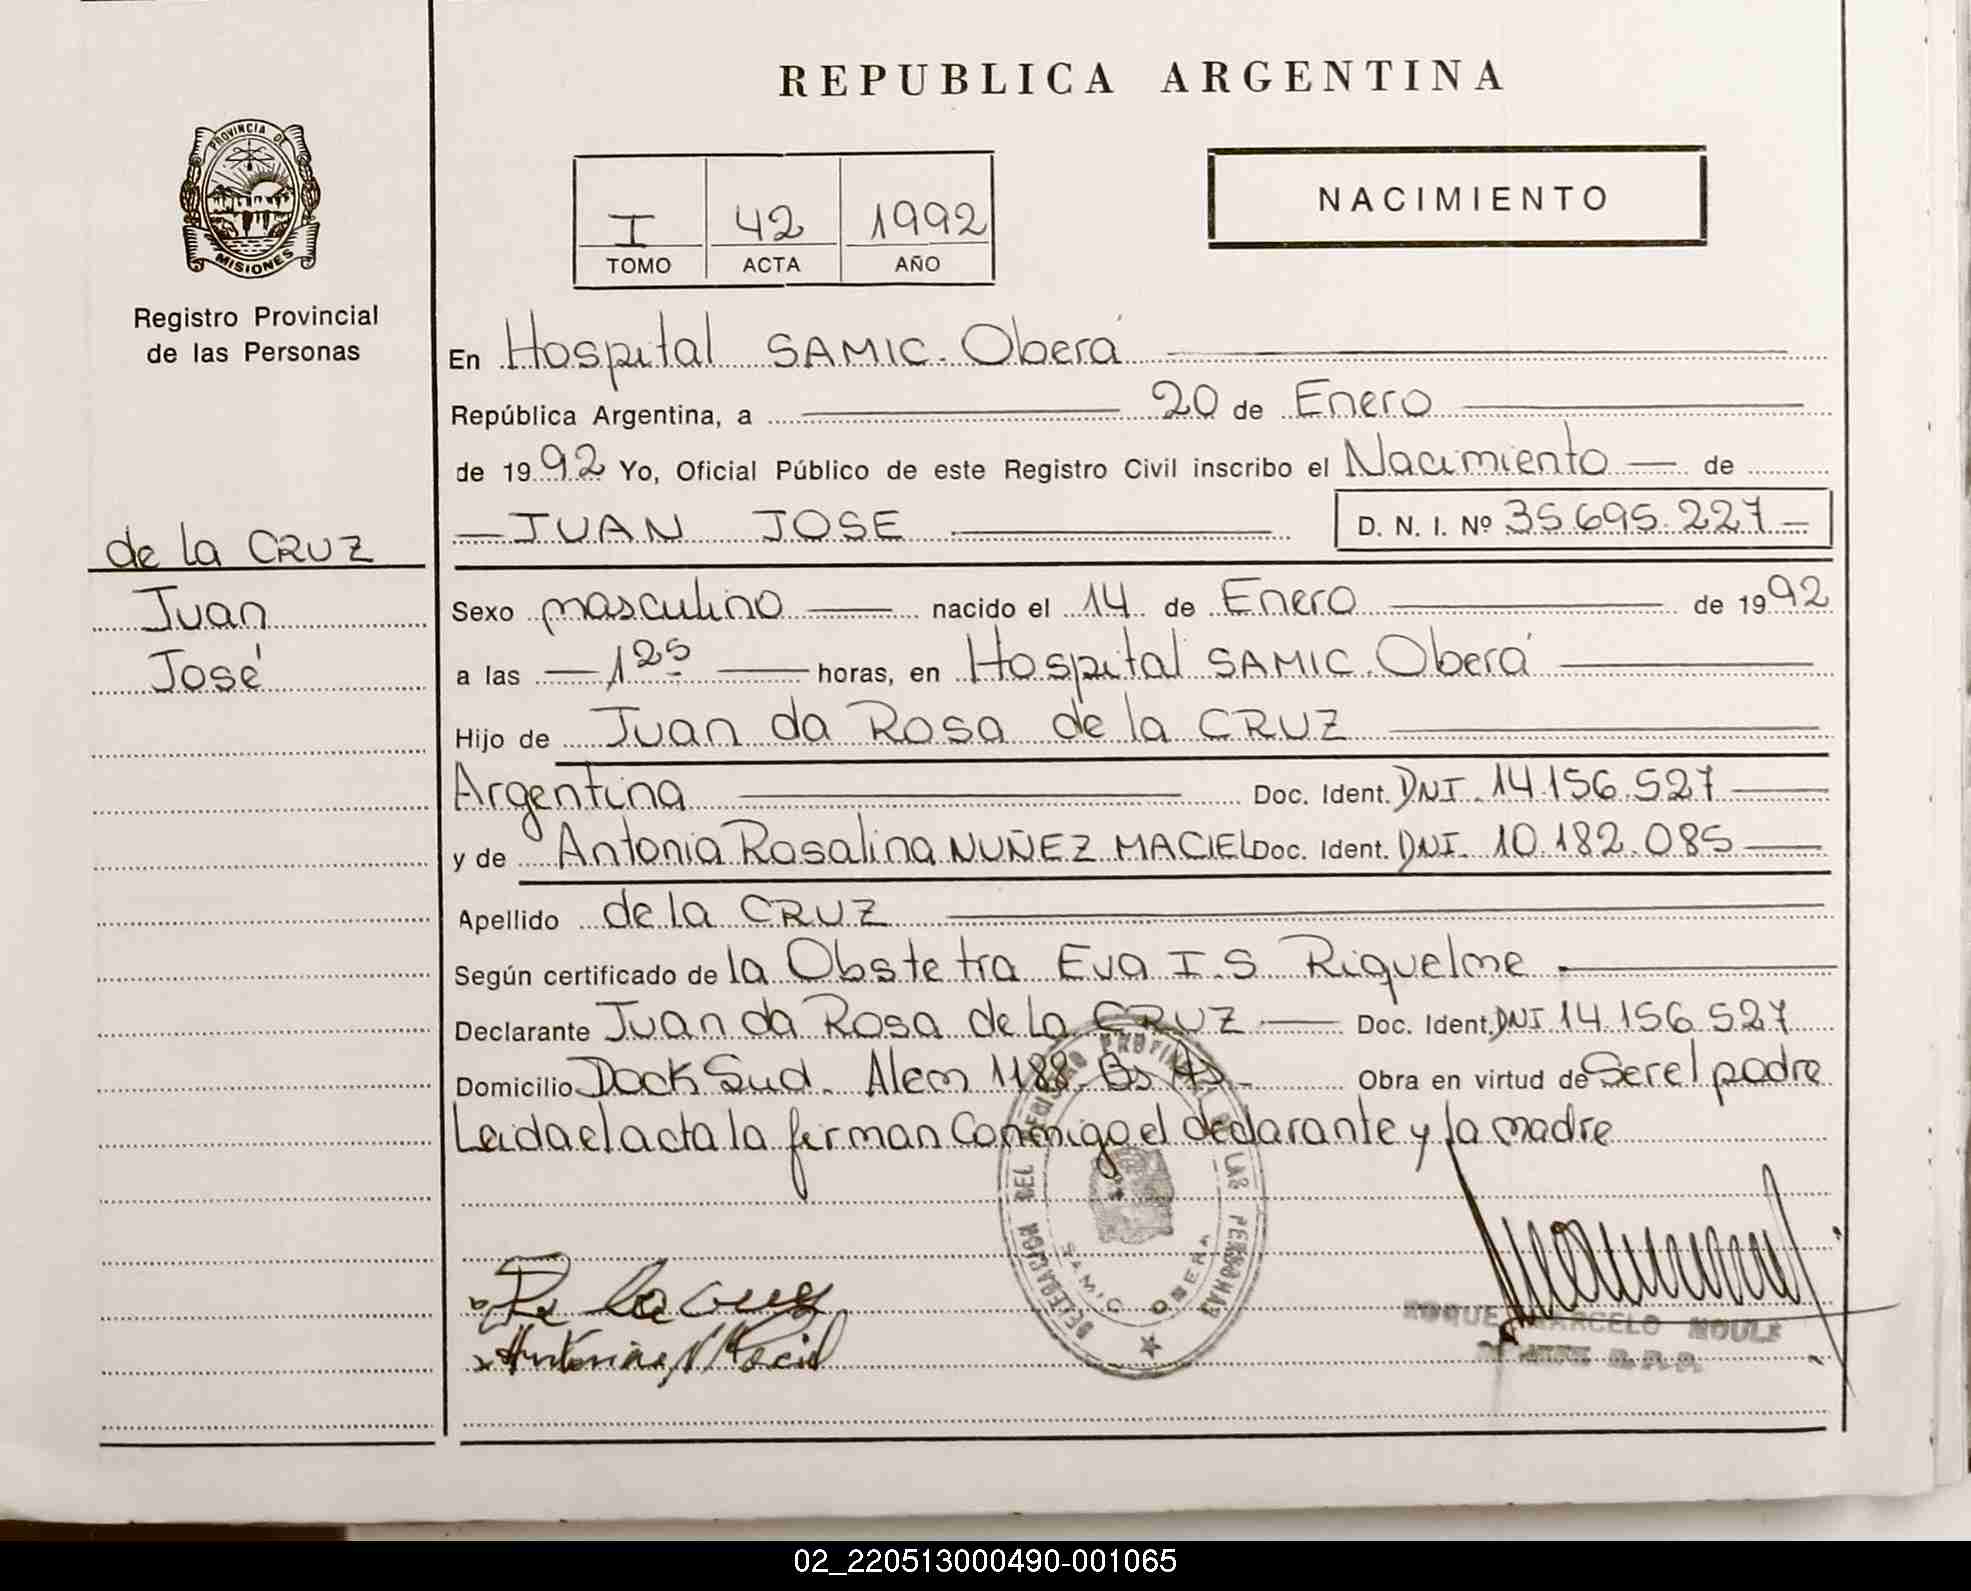 REPUBLICA ARGENTINA
PROVINCIA DE
MISIONES
Registro Provincial
de las Personas
I 42 1992
TOMO ACTA AÑO
NACIMIENTO
de la CRUZ
Juan
José
En Hospital SAMIC. Oberá
República Argentina, a 20 de Enero
de 1992 Yo, Oficial Público de este Registro Civil inscribo el Nacimiento de
JUAN JOSE D. N. I. Nº 35.695.227
Sexo masculino nacido el 14 de Enero de 1992
a las 1 25 horas, en Hospital SAMIC. Oberá
Hijo de Juan da Rosa de la CRUZ
Argentina Doc. Ident. DNI. 14.156.527
y de Antonia Rosalina NUÑEZ MACIEL Doc. Ident. DNI. 10.182.085
Apellido de la CRUZ
Según certificado de la Obstetra Eva I.S. Riquelme
Declarante Juan da Rosa de la CRUZ Doc. Ident. DNI 14.156.527
Domicilio Dock Sud. Alem 1188. Bs As. Obra en virtud de Ser el padre
Leida el acta la firman Conmigo el declarante y la madre
DELEGACION DEL REGISTRO PROVINCIAL DE LAS PERSONAS
SAMIC OBERA
De la Cruz
Antonia N Maciel
ROQUE MARCELO MOULE
JEFE R.P.P.
02_220513000490-001065